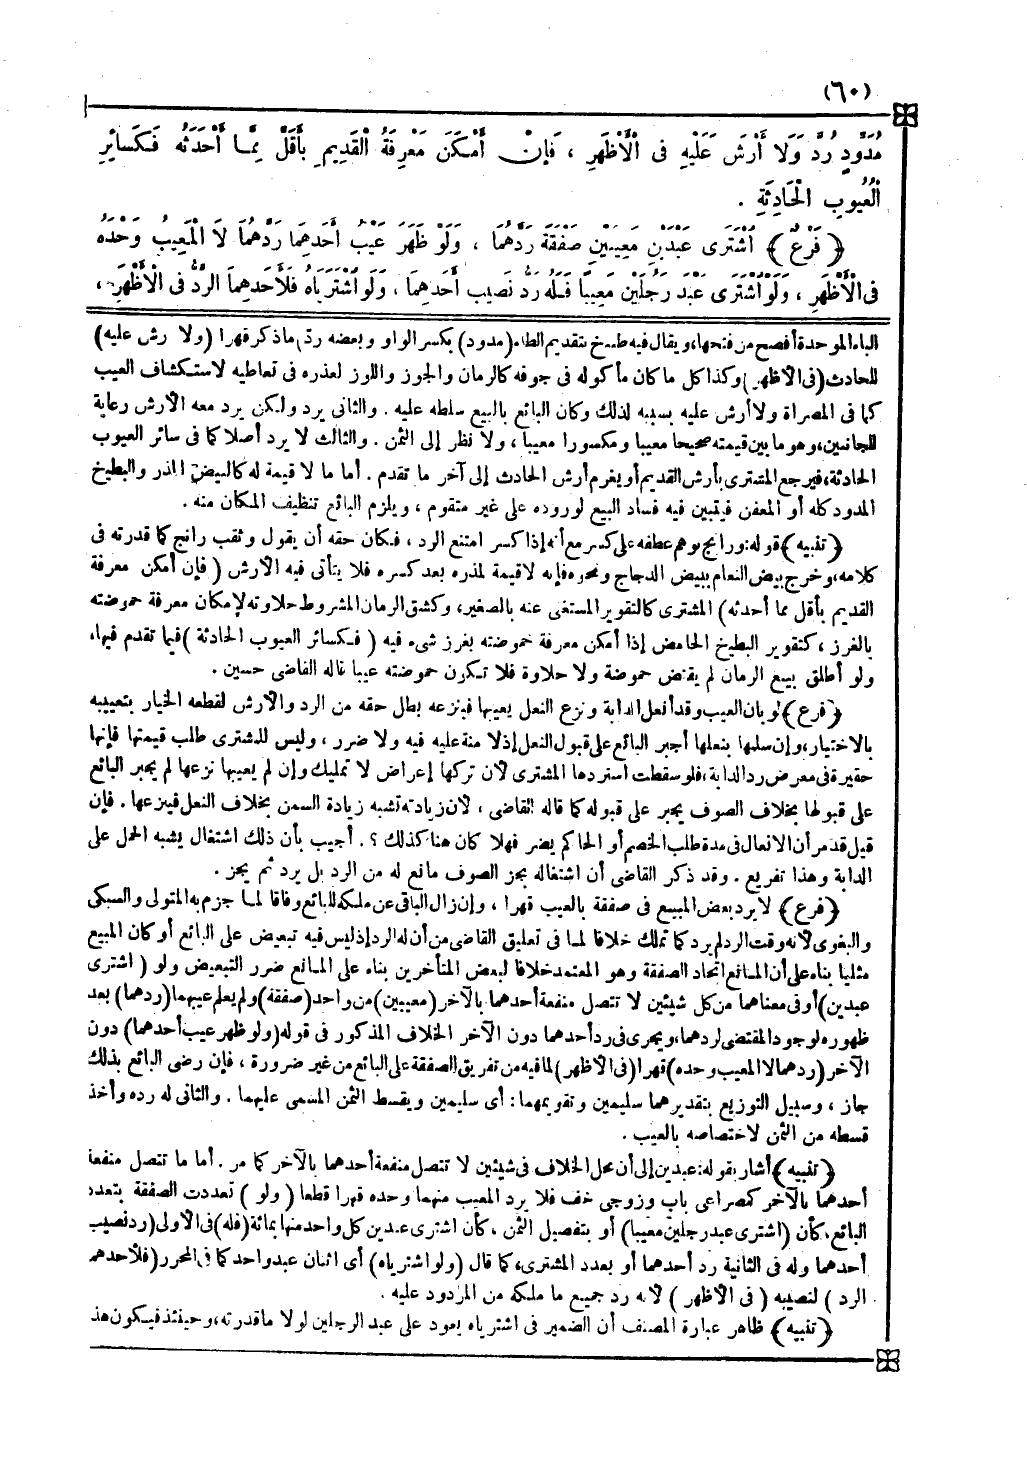 (٦٠)
مُدَوِّدٍ رُدَّ وَلَا أَرْشَ عَلَيْهِ فِى الْأَظْهَرِ ، فَإِنْ أَمْكَنَ مَعْرِفَةُ الْقَدِيمِ بِأَقَلَّ مِمَّا أَحْدَثَهُ فَكَسَائِرِ
الْعُيُوبِ الْحَادِثَةِ .
﴿ فَرْعٌ ﴾ اشْتَرَى عَبْدَيْنِ مَعِيبَيْنِ صَفْقَةً رَدَّهُمَا ، وَلَوْ ظَهَرَ عَيْبُ أَحَدِهِمَا رَدَّهُمَا لَا الْمَعِيبَ وَحْدَهُ
فِى الْأَظْهَرِ ، وَلَوِ اشْتَرَى عَبْدَ رَجُلَيْنِ مَعِيبًا فَلَهُ رَدُّ نَصِيبِ أَحَدِهِمَا ، وَلَوِ اشْتَرَيَاهُ فَلِأَحَدِهِمَا الرَّدُّ فِى الْأَظْهَرِ ،
الباء الموحدة أفصح من فتحها، ويقال فيه طبيخ بتقديم الطاء (مدود) بكسر الواو وبعضه رد، ما ذكر قهرا (ولا رش عليه)
للحادث (فى الأظهر) وكذا كل ما كان مأكوله فى جوفه كالرمان والجوز واللوز لعذره فى تعاطيه لاستكشاف العيب
كما فى المصراة ولا أرش عليه بسببه لذلك وكأن البائع بالبيع سلطه عليه . والثانى يرد ولكن يرد معه الأرش رعاية
للجانبين، وهو ما بين قيمته صحيحا معيبا ومكسورا معيبا ، ولا نظر إلى الثمن . والثالث لا يرد أصلا كما فى سائر العيوب
الحادثة، فيرجع المشترى بأرش القديم أو يغرم أرش الحادث إلى آخر ما تقدم . أما ما لا قيمة له كالبيض المذر والبطيخ
المدود كله أو المعفن فيتبين فيه فساد البيع لوروده على غير متقوم ، ويلزم البائع تنظيف المكان منه .
﴿ تنبيه ﴾ قوله: ورانج يوهم عطفه على كسر مع أنه إذا كسر امتنع الرد ، فكان حقه أن يقول وثقب رانج كما قدرته فى
كلامه، وخرج ببيض النعام بيض الدجاج ونحوه فإنه لا قيمة لمذره بعد كسره فلا يتأتى فيه الأرش ( فإن أمكن معرفة
القديم بأقل مما أحدثه ) المشترى كالتقوير المستغنى عنه بالصغير، وكشق الرمان المشروط حلاوته لإمكان معرفة حموضته
بالغرز ، كتقوير البطيخ الحامض إذا أمكن معرفة حموضته بغرز شىء فيه ( فكسائر العيوب الحادثة ) فيما تقدم فيها،
ولو أطلق بيع الرمان لم يقتض حموضة ولا حلاوة فلا تكون حموضته عيبا قاله القاضى حسين .
﴿ فرع ﴾ لو بان العيب وقد أنعل الدابة ونزع النعل يعيبها فنزعه بطل حقه من الرد والأرش لقطعه الخيار بتعييبه
بالاختيار، وإن سلمها بنعلها أجبر البائع على قبول النعل إذ لا منة عليه فيه ولا ضرر ، وليس للمشترى طلب قيمتها فإنها
حقيرة فى معرض رد الدابة، فلو سقطت استردها المشترى لأن تركها إعراض لا تمليك وإن لم يعيبها نزعها لم يجبر البائع
على قبولها بخلاف الصوف يجبر على قبوله كما قاله القاضى ، لأن زيادته تشبه زيادة السمن بخلاف النعل فينزعها . فإن
قيل قد مر أن الانعال فى مدة طلب الخصم أو الحاكم يضر فهلا كان هنا كذلك ؟ . أجيب بأن ذلك اشتغال يشبه الحمل على
الدابة وهذا تفريع . وقد ذكر القاضى أن اشتغاله بجز الصوف مانع له من الرد بل يرد ثم يجز .
﴿ فرع ﴾ لا يرد بعض المبيع فى صفقة بالعيب قهرا ، وإن زال الباقى عن ملكه للبائع وفاقا لما جزم به المتولى والسبكى
والبغوى لأنه وقت الرد لم يرد كما تملك خلافا لما فى تعليق القاضى من أن له الرد إذ ليس فيه تبعيض على البائع أو كان المبيع
مثليا بناء على أن المانع اتحاد الصفقة وهو المعتمد خلافا لبعض المتأخرين بناء على المانع ضرر التبعيض ولو ( اشترى
عبدين ) أو فى معناهما من كل شيئين لا تتصل منفعة أحدهما بالآخر (معيبين) من واحد (صفقة) ولم يعلم عيبهما (ردهما) بعد
ظهوره لوجود المقتضى لردهما، ويجرى فى رد أحدهما دون الآخر الخلاف المذكور فى قوله (ولو ظهر عيب أحدهما) دون
الآخر (ردهما لا المعيب وحده) قهرا (فى الأظهر) لما فيه من تفريق الصفقة على البائع من غير ضرورة ، فإن رضى البائع بذلك
جاز ، وسبيل التوزيع بتقديرهما سليمين وتقويمهما : أى سليمين ويقسط الثمن المسمى عليهما . والثانى له رده وأخذ
قسطه من الثمن لاختصاصه بالعيب .
﴿ تنبيه ﴾ أشار بقوله: عبدين إلى أن محل الخلاف فى شيئين لا تتصل منفعة أحدهما بالآخر كما مر . أما ما تتصل منفعة
أحدهما بالآخر كمصراعى باب وزوجى خف فلا يرد المعيب منهما وحده قهرا قطعا ( ولو ) تعددت الصفقة بتعدد
البائع، كأن (اشترى عبد رجلين معيبا) أو بتفصيل الثمن ، كأن اشترى عبدين كل واحد منهما بمائة (فله) فى الأولى (رد نصيب
أحدهما وله فى الثانية رد أحدهما أو بعدد المشترى، كما قال (ولو اشترياه) أى اثنان عبد واحد كما فى المحرر (فلأحدهما
الرد ) لنصيبه ( فى الأظهر ) لأنه رد جميع ما ملكه من المردود عليه .
﴿ تنبيه ﴾ ظاهر عبارة المصنف أن الضمير فى اشترياه يعود على عبد الرجلين لولا ما قدرته، وحينئذ فيكون هذ